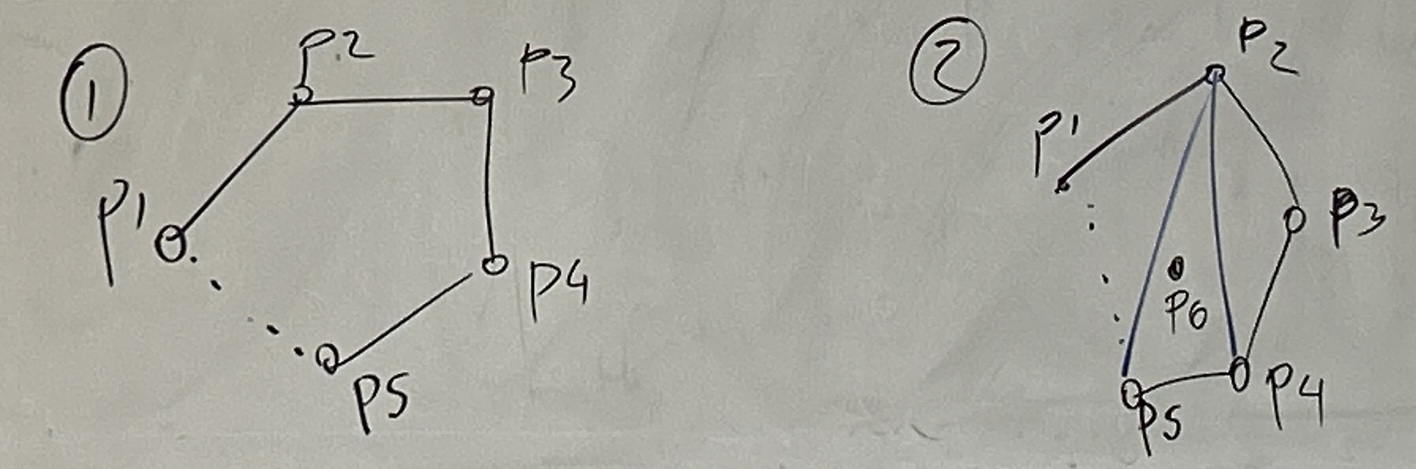 ①
P2
P3
P1
P4
P5
②
P2
P1
P3
P6
P4
P5